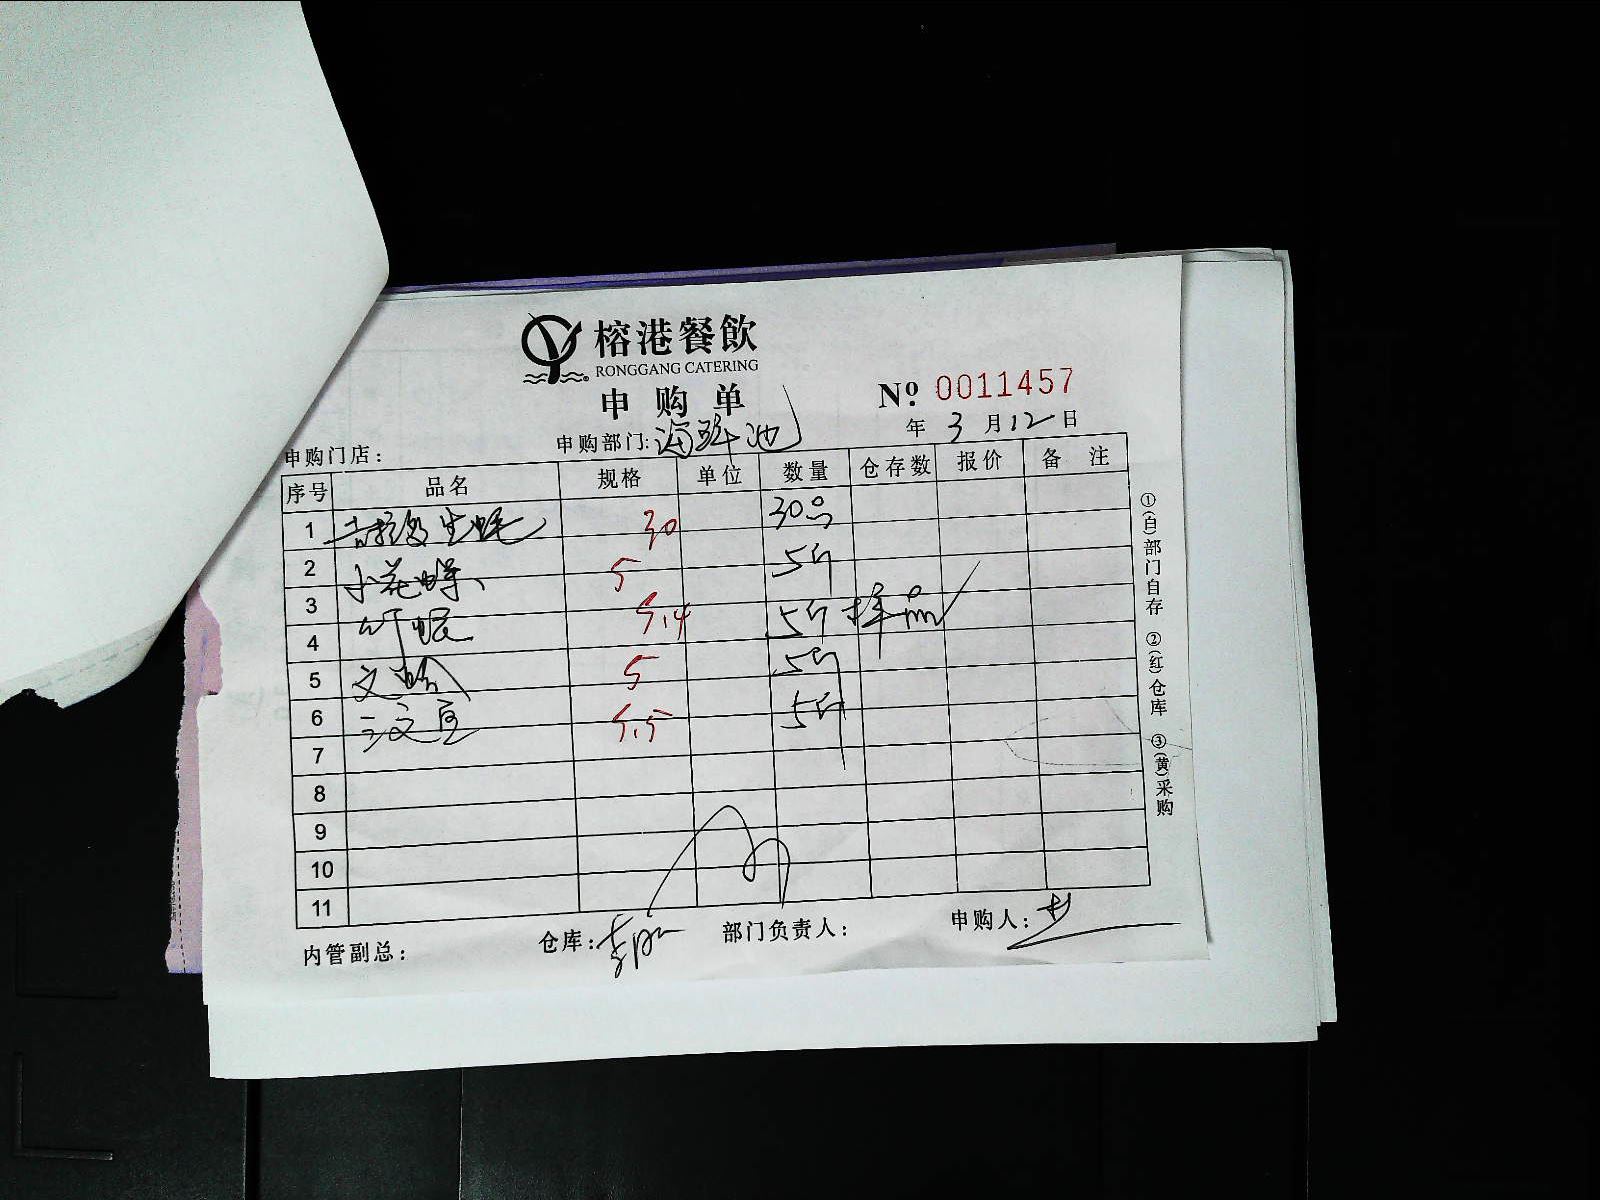 榕港餐飲
RONGGANG CATERING
申购单
№ 0011457
申购门店： 申购部门：海鲜池 年 3 月 12 日
序号 品名 规格 单位 数量 仓存数 报价 备 注
1 吉拉多生蚝 30 30只
2 小花螺 5 5斤
3 竹蛏 5.4 5斤 样品
4
5 文蛤 5 5斤
6 三文鱼 5.5 5斤
7
8
9
10
11
内管副总： 仓库： 部门负责人： 申购人：
①(白)部门自存 ②(红)仓库 ③(黄)采购